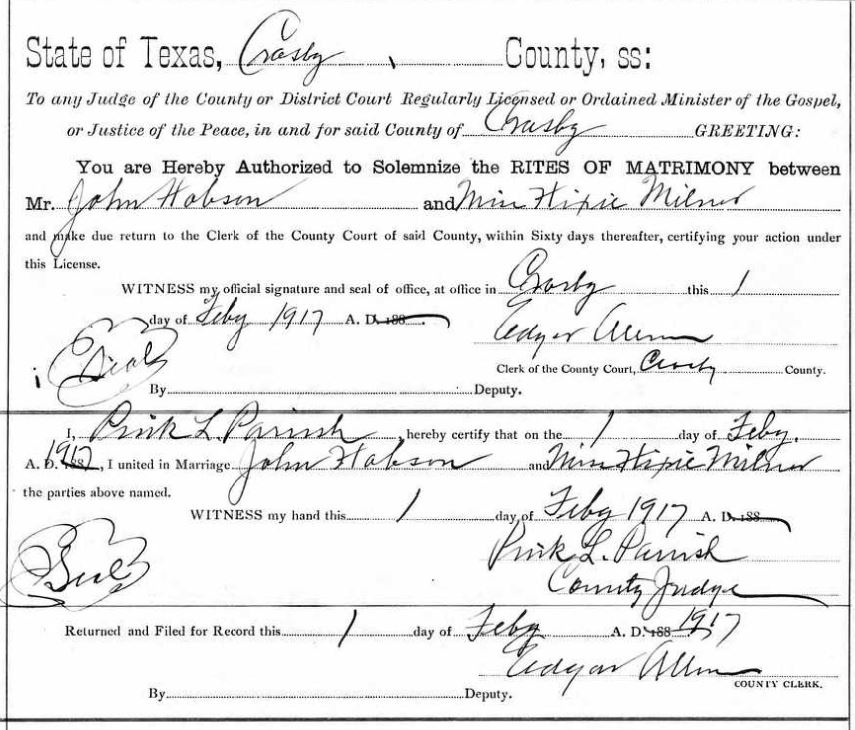 State of Texas, Crosby County, ss:
To any Judge of the County or District Court Regularly Licensed or Ordained Minister of the Gospel,
or Justice of the Peace, in and for said County of Crosby GREETING:
You are Hereby Authorized to Solemnize the RITES OF MATRIMONY between
Mr. John Hobson and Miss Hixie Milner
and make due return to the Clerk of the County Court of said County, within Sixty days thereafter, certifying your action under
this License.
WITNESS my official signature and seal of office, at office in Crosby this 1
day of Feby 1917 A. D. 188
Edgar Allen
Seal
Clerk of the County Court, Crosby County.
By Deputy.
I, Pink L. Parrish, hereby certify that on the 1 day of Feby.
A. D. 1917, I united in Marriage John Hobson and Miss Hixie Milner
the parties above named.
WITNESS my hand this 1 day of Feby 1917 A. D. 188
Pink L. Parrish
Seal
County Judge
Returned and Filed for Record this 1 day of Feby A. D. 188 1917
Edgar Allen
COUNTY CLERK.
By Deputy.